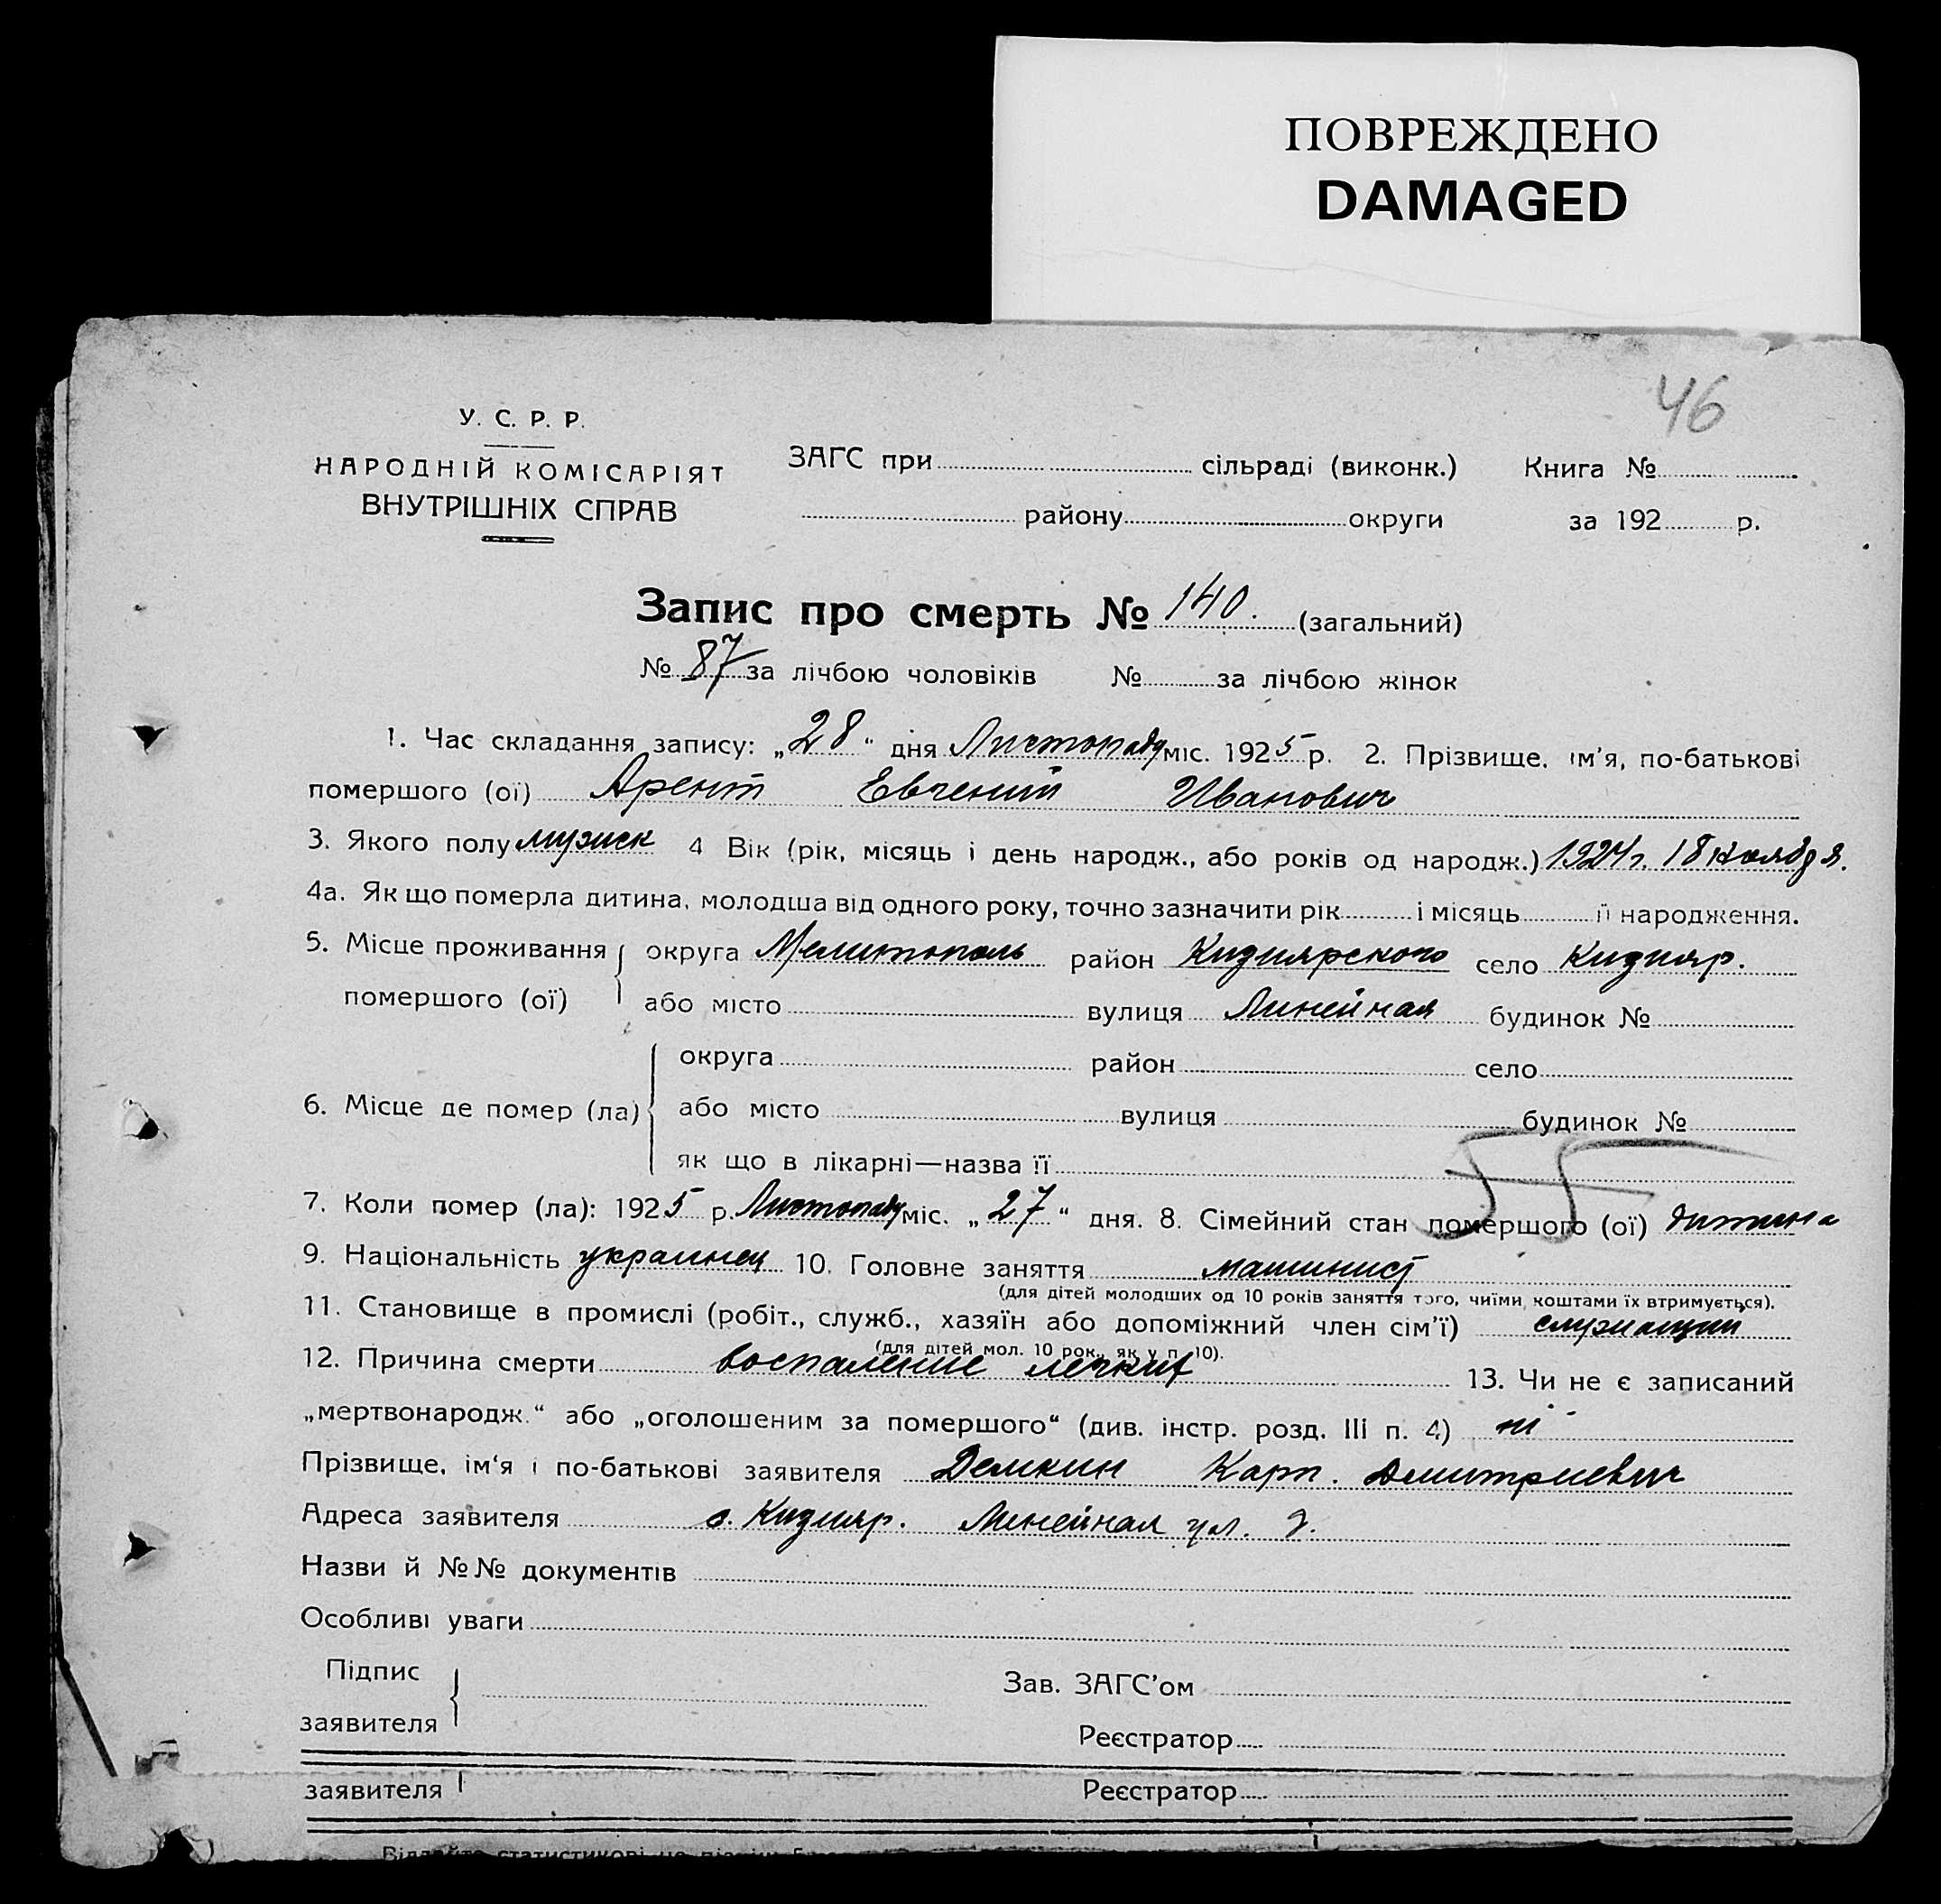 ПОВРЕЖДЕНО
DAMAGED
46
У. С. Р. Р.
НАРОДНІЙ КОМІСАРІЯТ
ВНУТРІШНІХ СПРАВ
ЗАГС при сільраді (виконк.) Книга №
району округи за 192 р.
Запис про смерть № 140. (загальний)
№ 87 за лічбою чоловіків № за лічбою жінок
1. Час складання запису: „28“ дня Листопаду міс. 1925 р. 2. Прізвище, ім’я, по-батькові
помершого (ої) Арент Евгений Иванович
3. Якого полу мужск 4 Вік (рік, місяць і день народж., або років од народж.) 1924 г. 18 ноября.
4а. Як що померла дитина, молодша від одного року, точно зазначити рік і місяць її народження.
5. Місце проживання округа Мелитополь район Кизиярского село Кизияр.
помершого (ої) або місто вулиця Линейная будинок №
округа район село
6. Місце де помер (ла) або місто вулиця будинок №
як що в лікарні—назва її
55
7. Коли помер (ла): 1925 р. Листопаду міс. „27“ дня. 8. Сімейний стан помершого (ої) дитина
9. Національність украинец 10. Головне заняття машинист
(для дітей молодших од 10 років заняття того, чиїми коштами їх втримується).
11. Становище в промислі (робіт., служб., хазяїн або допоміжний член сім’ї) служащий
(для дітей мол. 10 рок., як у п. 10).
12. Причина смерти воспаление легких 13. Чи не є записаний
„мертвонародж.“ або „оголошеним за помершого“ (див. інстр. розд. III п. 4) ні
Прізвище, ім‘я і по-батькові заявителя Демкин Карп. Дмитриевич
Адреса заявителя с. Кизияр. Линейная ул. д.
Назви й №№ документів
Особливі уваги
Підпис
заявителя
Зав. ЗАГС’ом
Реєстратор
заявителя Реєстратор